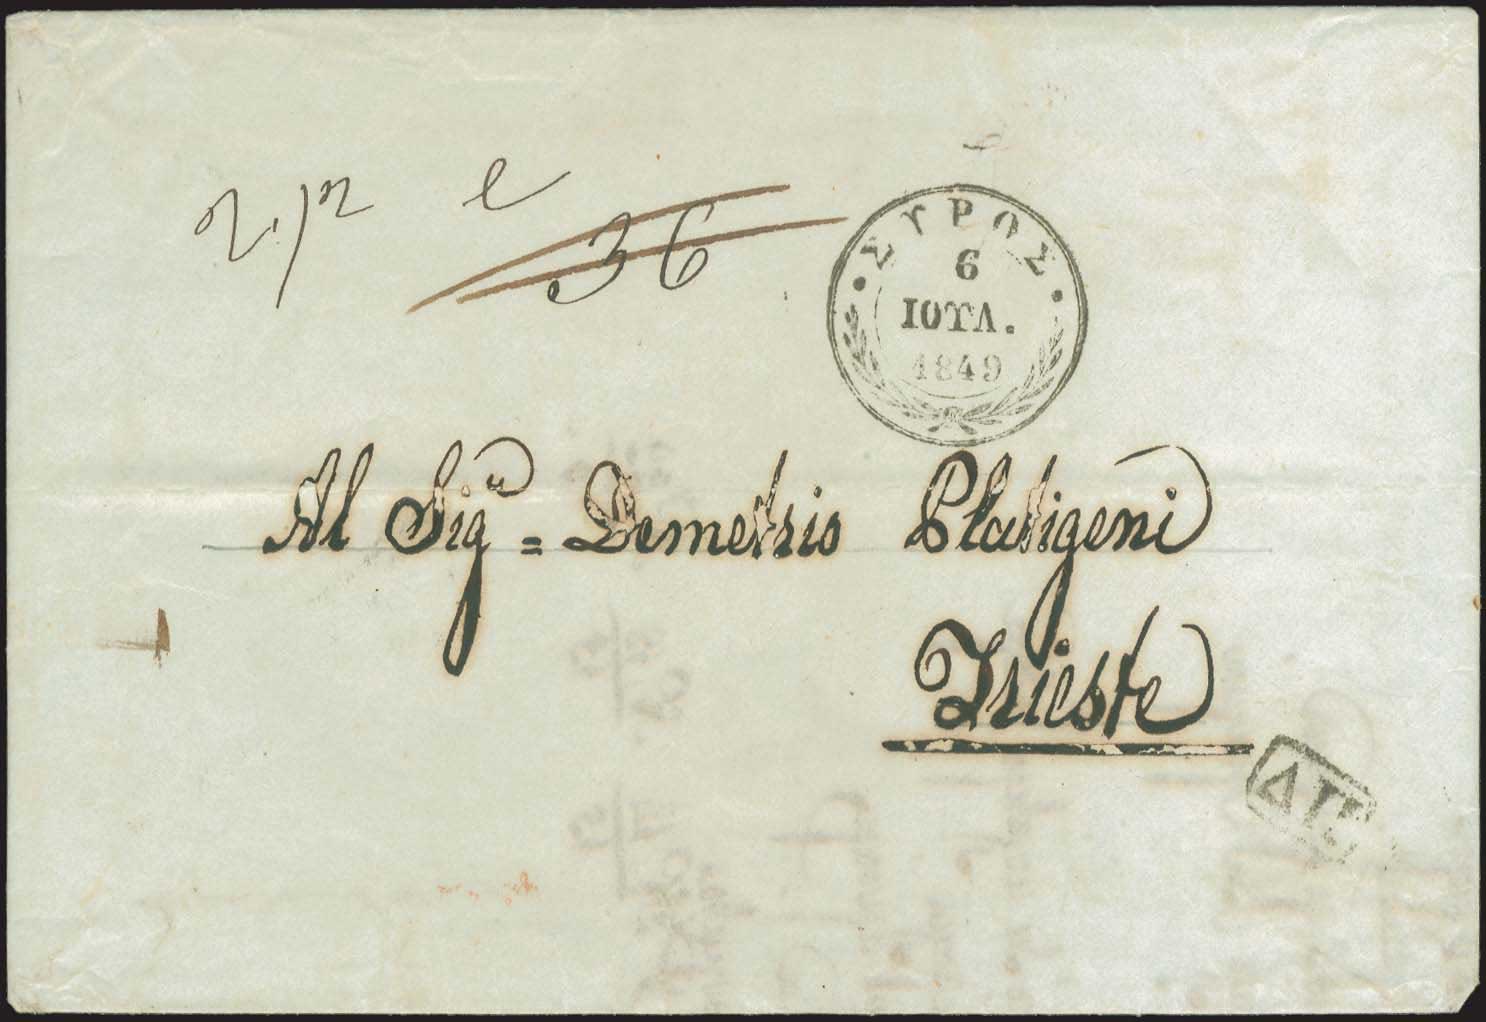 36
ΣΥΡΟΣ
6
ΙΟΥΛ.
1849
Al Sig.r = Demetrio Platigeni
Trieste
ΔΠ.